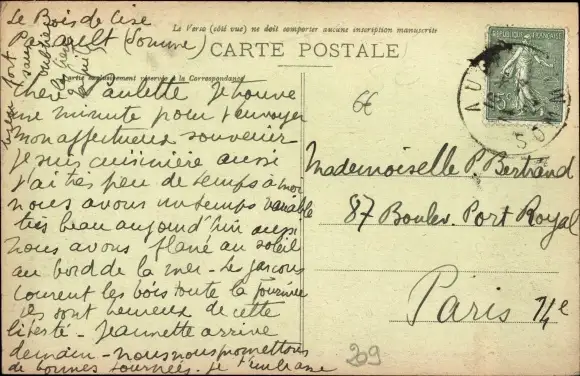 Le Bois de Cise
par Ault (Somme)
Le Verso (côté vue) ne doit comporter aucune inscription manuscrite
CARTE POSTALE
Partie exclusivement réservée à la Correspondance
REPUBLIQUE FRANÇAISE
AU
SOMME
6€
Chère Paulette Je trouve
une minute pour t'envoyer
mon affectueux souvenir
Je suis cuisinière aussi
j'ai très peu de temps à moi
nous avons un temps variable
très beau aujourd'hui aussi
nous avons flané au soleil
au bord de la mer - Les garçons
courent les bois toute la journée
ils sont heureux de cette
liberté - Jeannette arrive
demain - nous nous promettons
de bonnes journées. Je t'embrasse
bien fort
sans
oublier
Mademoiselle P. Bertrand
87 Boulev. Port Royal
Paris 14e
209